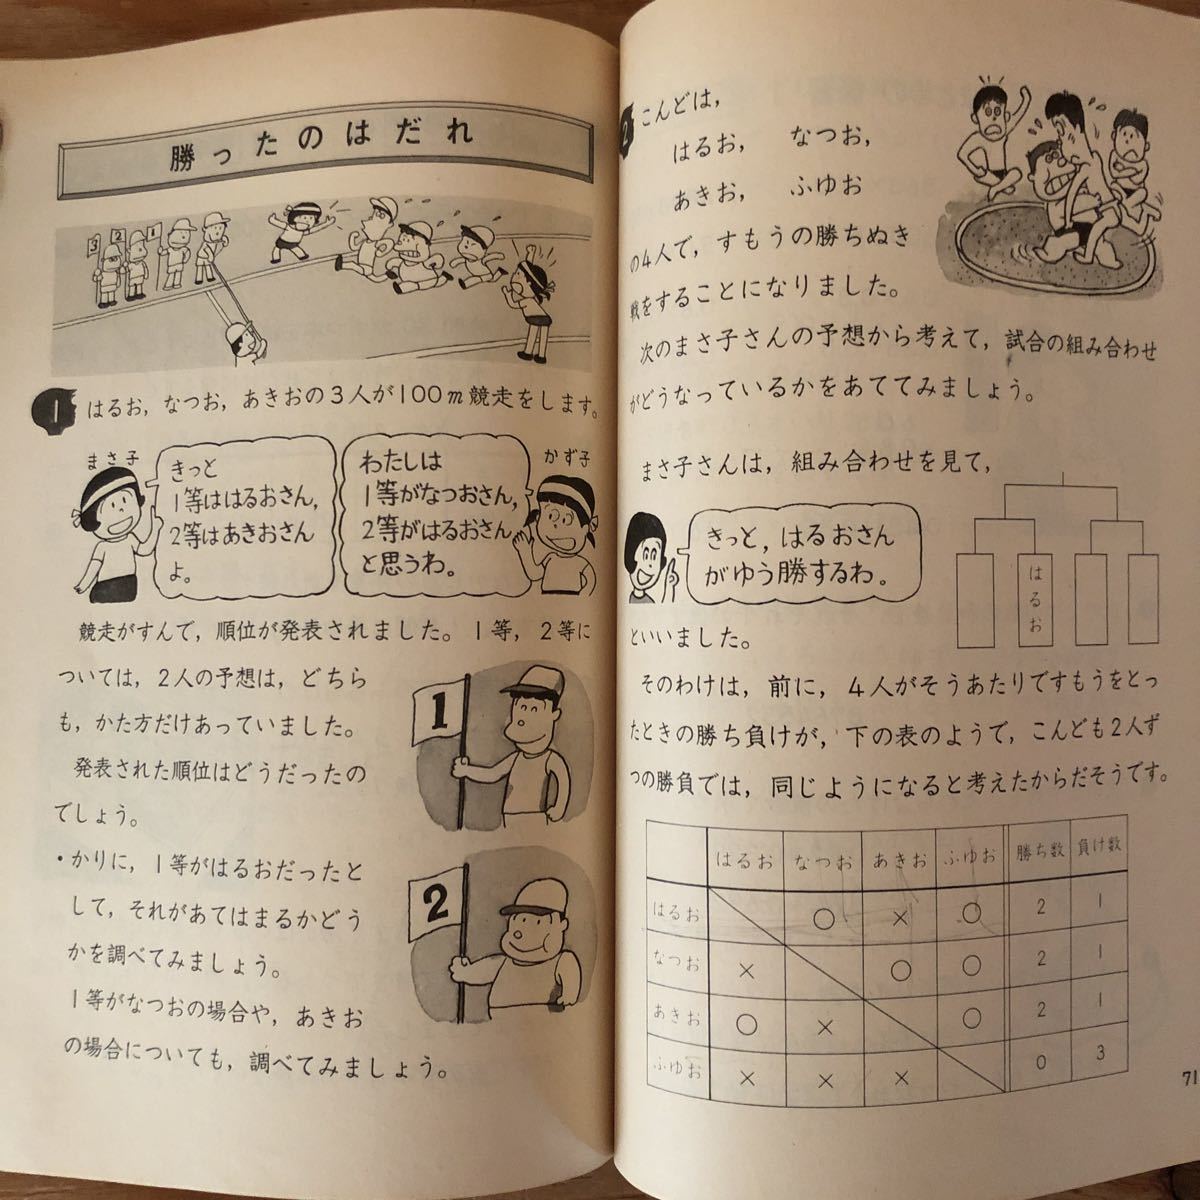 勝ったのはだれ
3
2
1
1 はるお，なつお，あきおの3人が100m競走をします。
まさ子
きっと
1等ははるおさん，
2等はあきおさん
よ。
かず子
わたしは
1等がなつおさん，
2等がはるおさん
と思うわ。
競走がすんで，順位が発表されました。1等，2等に
ついては，2人の予想は，どちら
も，かた方だけあっていました。
発表された順位はどうだったの
でしょう。
・かりに，1等がはるおだったと
して，それがあてはまるかどう
かを調べてみましょう。
1等がなつおの場合や，あきお
の場合についても，調べてみましょう。
1
2
2 こんどは，
はるお， なつお，
あきお， ふゆお
の4人で，すもうの勝ちぬき
戦をすることになりました。
次のまさ子さんの予想から考えて，試合の組み合わせ
がどうなっているかをあててみましょう。
まさ子さんは，組み合わせを見て，
きっと，はるおさん
がゆう勝するわ。
はるお
といいました。
そのわけは，前に，4人がそうあたりですもうをとっ
たときの勝ち負けが，下の表のようで，こんども2人ず
つの勝負では，同じようになると考えたからだそうです。
はるお なつお あきお ふゆお 勝ち数 負け数
はるお ○ × ○ 2 1
なつお × ○ ○ 2 1
あきお ○ × ○ 2 1
ふゆお × × × 0 3
71